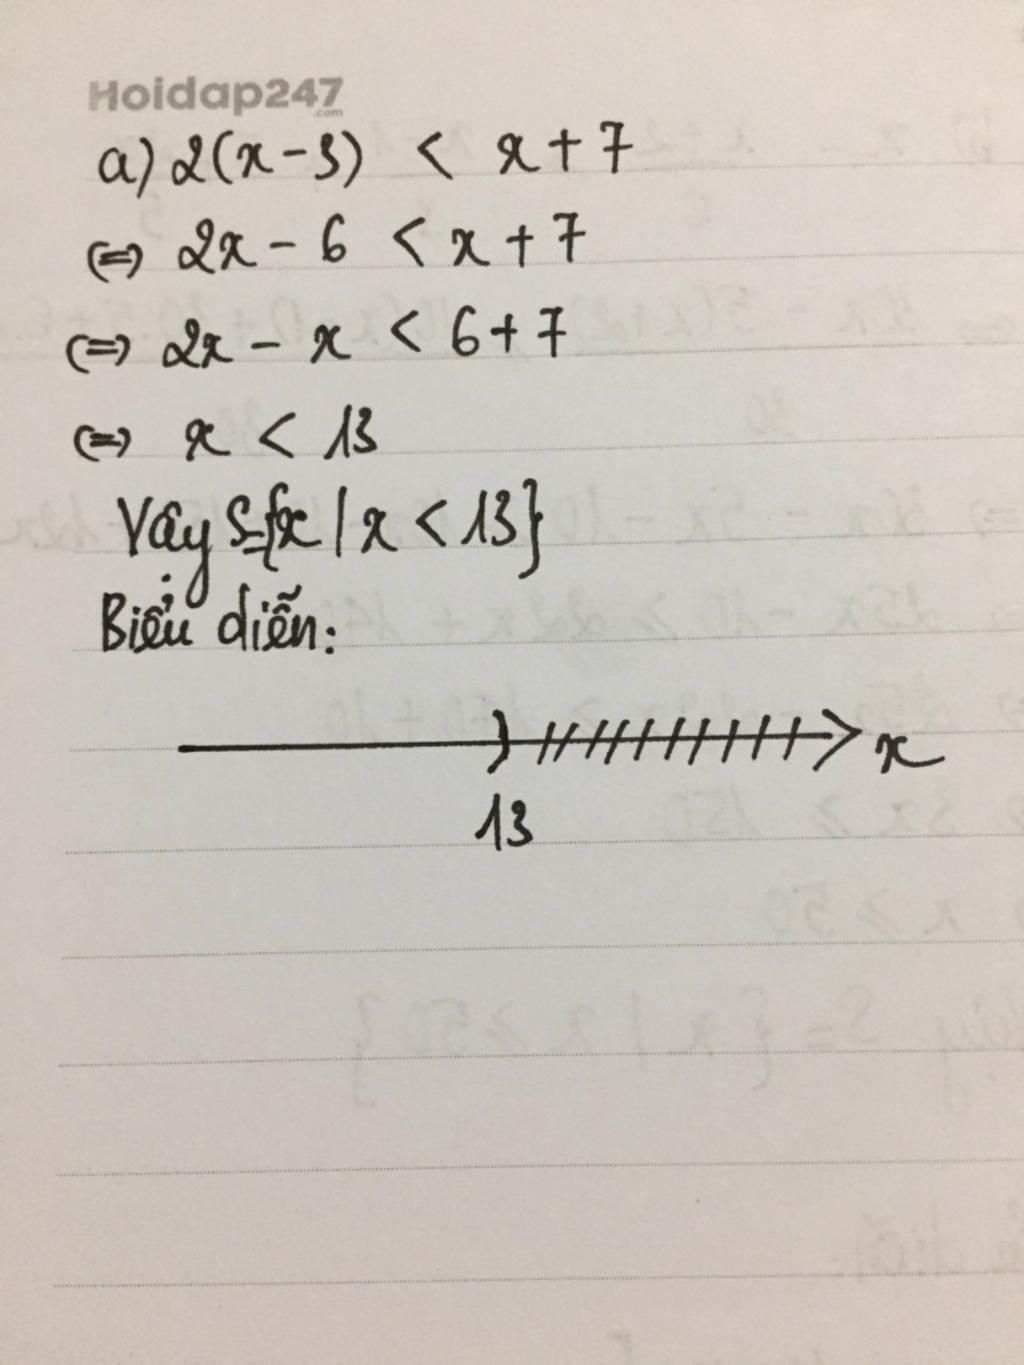 Hoidap247
.com
a) 2(x-3) < x+7
(=) 2x - 6 < x+7
(=) 2x - x < 6+7
(=) x < 13
Vậy S={x | x < 13}
Biểu diễn:
x
13